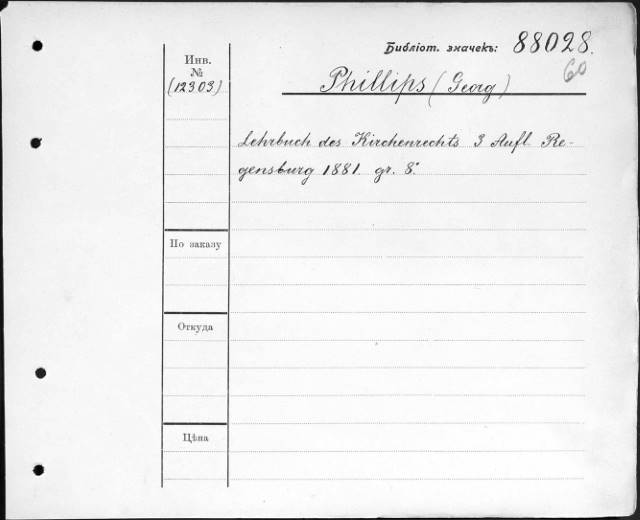 Библіот. значекъ: 88028.
60
Инв.
№
(12303)
Phillips (Georg)
Lehrbuch des Kirchenrechts 3 Aufl. Re-
gensburg 1881. gr. 8°
По заказу
Откуда
Цѣна